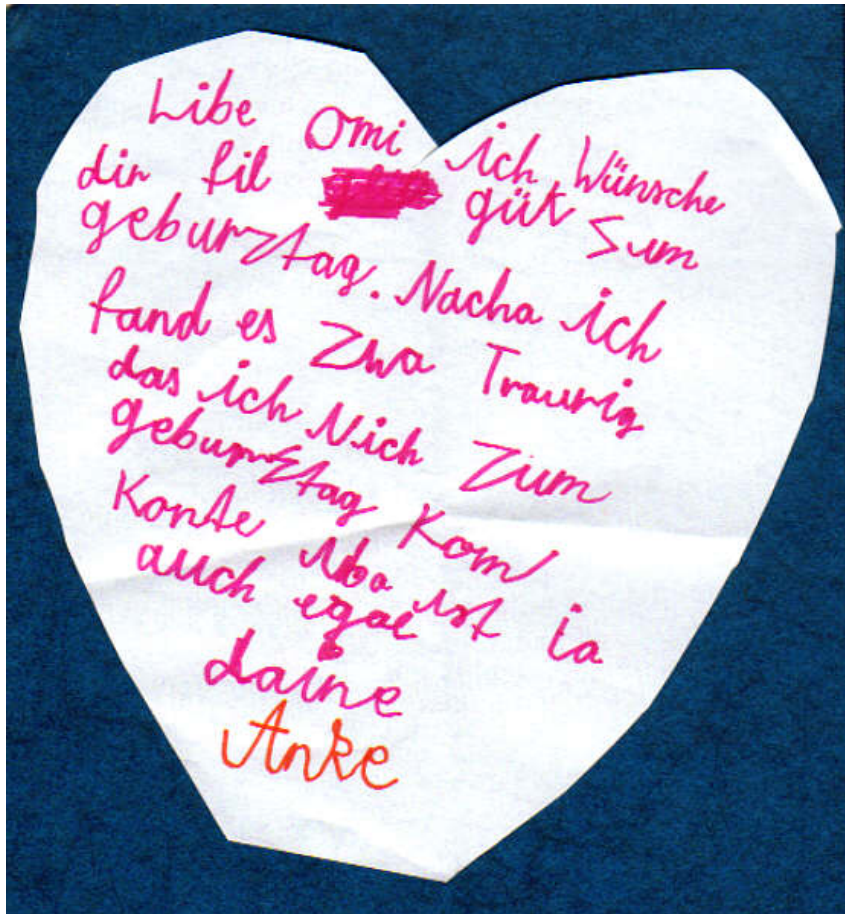 Libe Omi ich Wünsche
dir fil güt Sum
geburztag. Nacha ich
fand es Zwa Traurig
das ich Nich Zum
geburztag Kom
Konte Aba ist ia
auch egal
daine
Anke